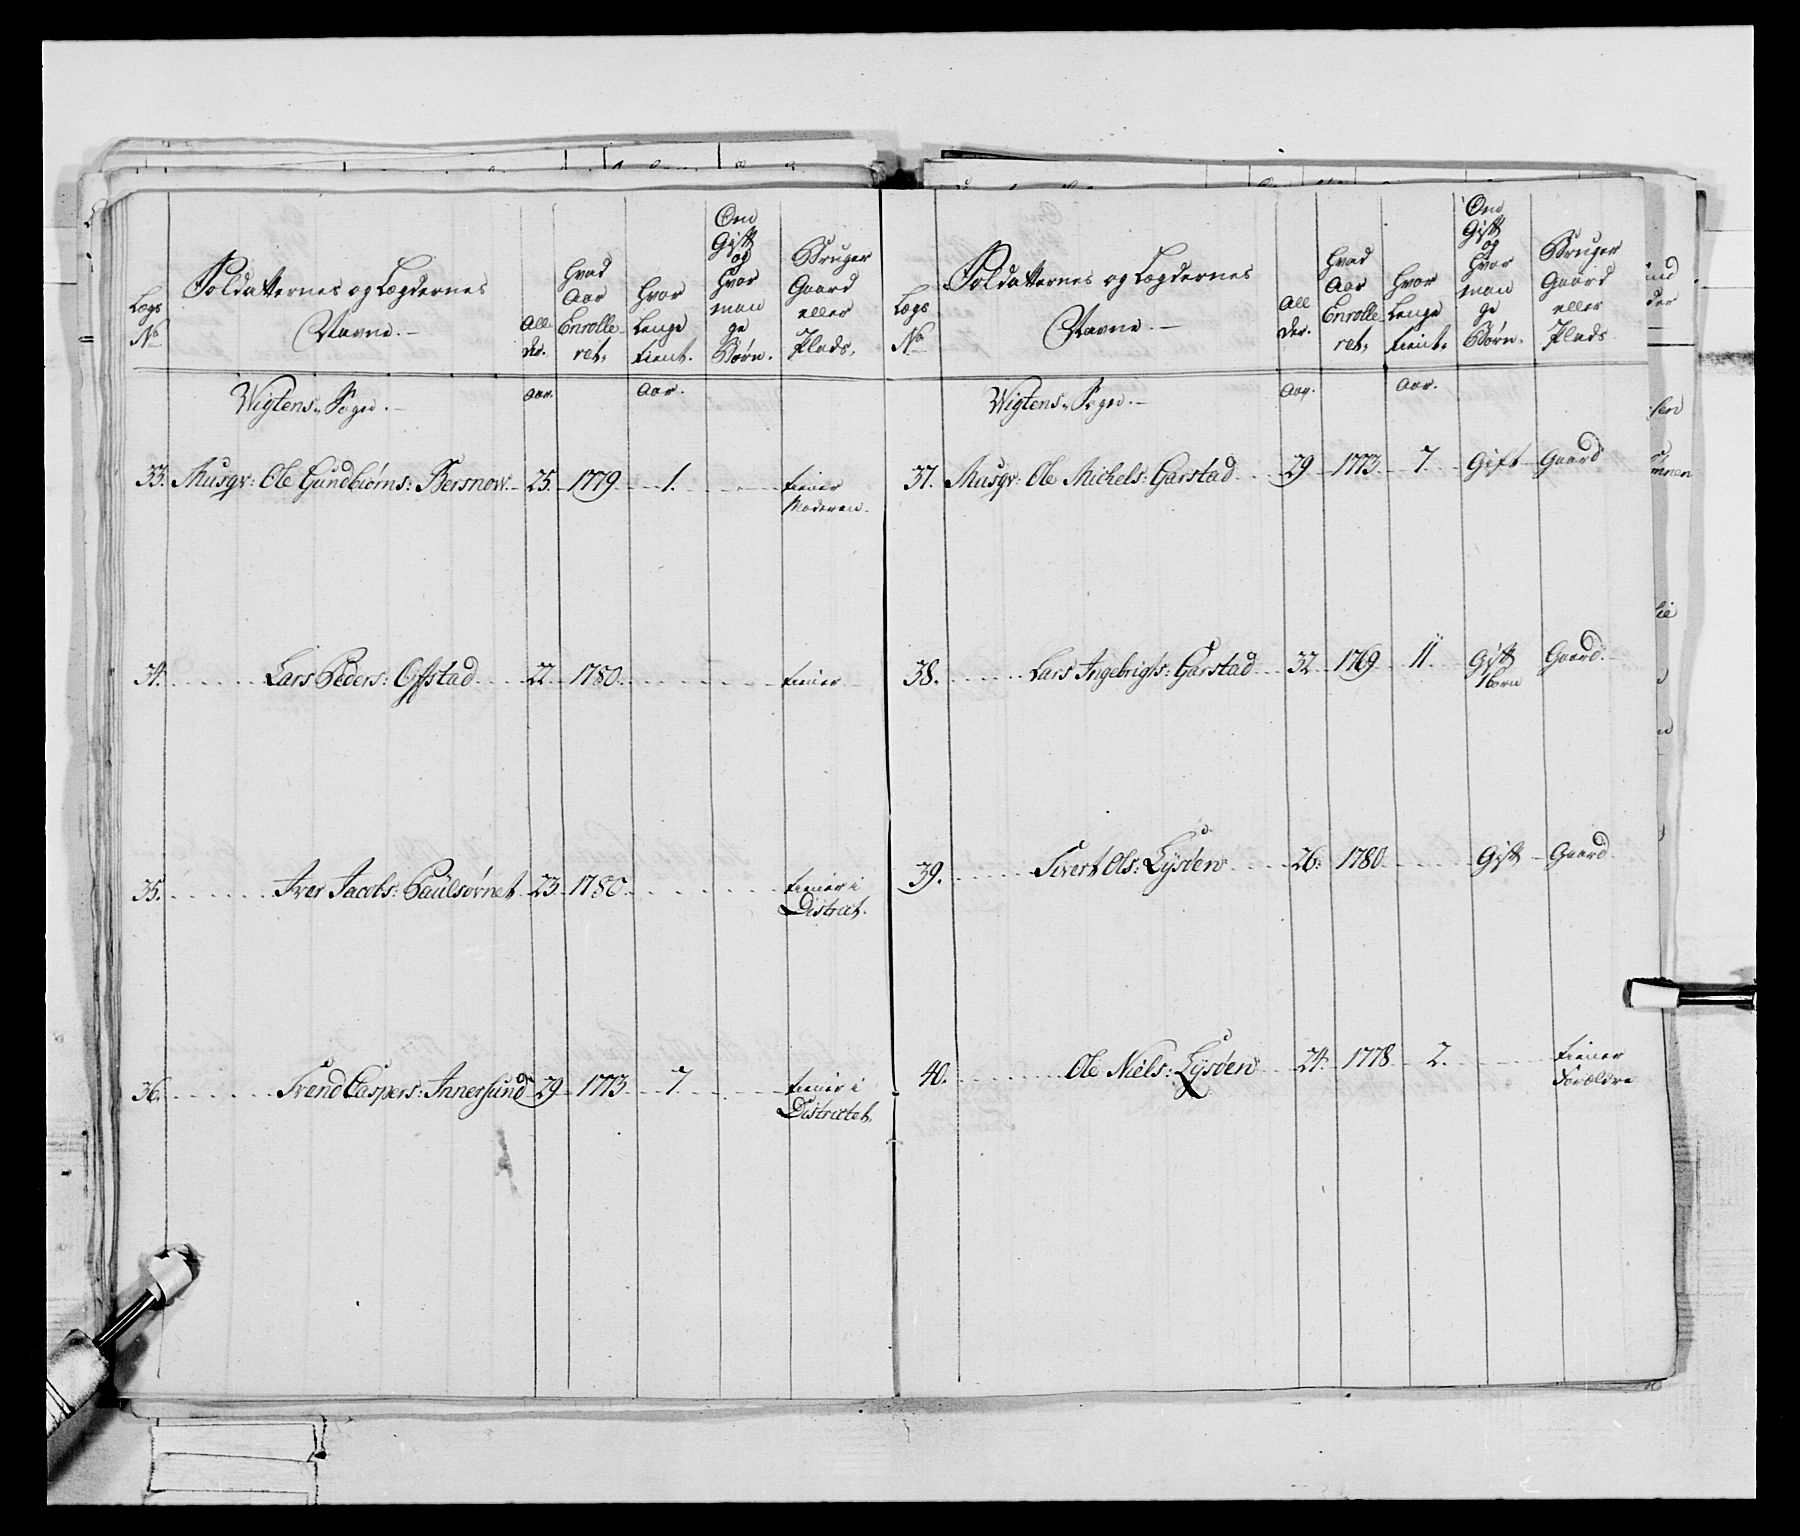 Lægs No
Soldatternes og Lægdernes Navne.
Allder.
Hvad Aar Enrolleret.
Hvor Lenge tient.
Om Gift og Hvor mange Børn.
Bruger Gaard eller Plads.
Wigtens Sogn.
Aar.
Aar.
33. Musqr: Ole Gundbiørns: Bersnow. 25. 1779. 1. tiener Moderen.
34. Lars Peders: Ofstad. 22. 1780. tiener
35. Iver Jacobs: Paulsørnet 23. 1780. tiener i District.
36. Trend Caspers: Innersund 29. 1773 7. tiener i Districtet.
Lægs No
Soldatternes og Lægdernes Navne.
Allder.
Hvad Aar Enrolleret.
Hvor Lenge tient.
Om Gift og Hvor mange Børn.
Bruger Gaard eller Plads.
Wigtens Sogn.
Aar.
Aar.
37. Musqr: Ole Michels: Garstad. 29 1773. 7. Gift Gaard
38. Lars Ingebrigts: Garstad 32 1769 11. Gift 1 børn Gaard.
39. Sivert Ols: Lysöen 26. 1780. Gift Gaard.
40. Ole Niels: Lysöen 24. 1778. 2. tiener Forældre